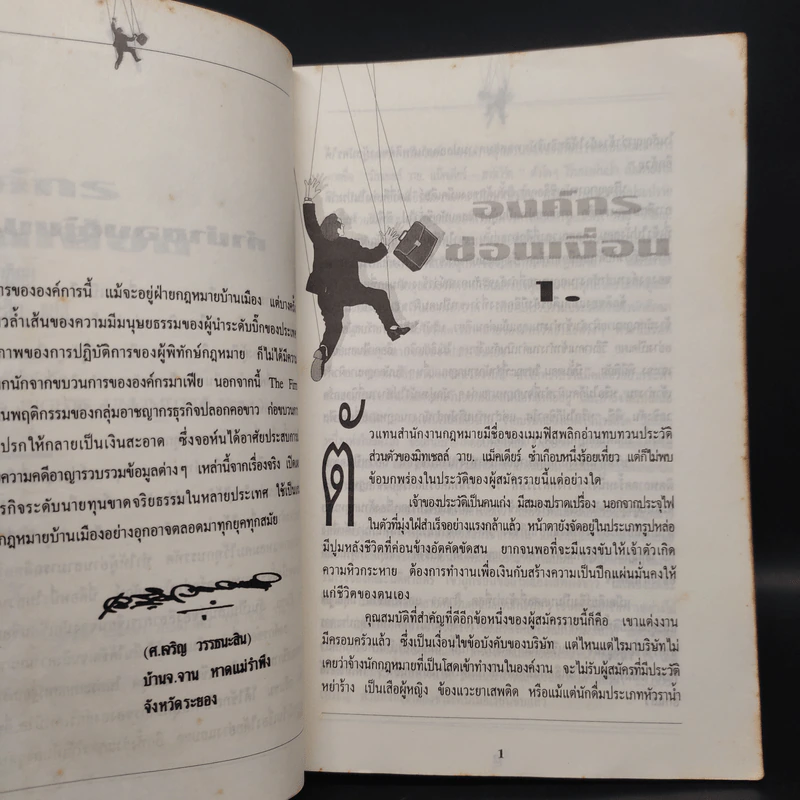 การขององค์การนี้ แม้จะอยู่ฝ่ายกฎหมายบ้านเมือง แต่บางครั้ง
วล้ำเส้นของความมีมนุษยธรรมของผู้นำระดับบิ๊กของประเทศ
ภาพของการปฏิบัติการของผู้พิทักษ์กฎหมาย ก็ไม่ได้มีความ
กนักจากขบวนการขององค์กรมาเฟีย นอกจากนี้ The Firm
นพฤติกรรมของกลุ่มอาชญากรธุรกิจปลอกคอขาว ก่อขบวนการ
ปรกให้กลายเป็นเงินสะอาด ซึ่งจอห์นได้อาศัยประสบการ
ความคดีอาญารวบรวมข้อมูลต่างๆ เหล่านี้จากเรื่องจริง เปิดเผ
รกิจระดับนายทุนขาดจริยธรรมในหลายประเทศ ใช้เป็น
กฎหมายบ้านเมืองอย่างอุกอาจตลอดมาทุกยุคทุกสมัย
(ศ.เจริญ วรรธนะสิน)
บ้านจ.จาน หาดแม่รำพึง
จังหวัดระยอง
องค์กร
ซ่อนเงื่อน
1.
ตัวแทนสำนักงานกฎหมายมีชื่อของเมมฟิสพลิกอ่านทบทวนประวัติ
ส่วนตัวของมิทเชลล์ วาย. แม็คเดียร์ ซ้ำเกือบหนึ่งร้อยเที่ยว แต่ก็ไม่พบ
ข้อบกพร่องในประวัติของผู้สมัครรายนี้แต่อย่างใด
เจ้าของประวัติเป็นคนเก่ง มีสมองปราดเปรื่อง นอกจากประจุไฟ
ในตัวที่มุ่งใฝ่สำเร็จอย่างแรงกล้าแล้ว หน้าตายังจัดอยู่ในประเภทรูปหล่อ
มีปูมหลังชีวิตที่ค่อนข้างอัตคัดขัดสน ยากจนพอที่จะมีแรงขับให้เจ้าตัวเกิด
ความหิวกระหาย ต้องการทำงานเพื่อเงินกับสร้างความเป็นปึกแผ่นมั่นคงให้
แก่ชีวิตของตนเอง
คุณสมบัติที่สำคัญที่ดีอีกข้อหนึ่งของผู้สมัครรายนี้ก็คือ เขาแต่งงาน
มีครอบครัวแล้ว ซึ่งเป็นเงื่อนไขข้อบังคับของบริษัท แต่ไหนแต่ไรมาบริษัทไม่
เคยว่าจ้างนักกฎหมายที่เป็นโสดเข้าทำงานในองค์งาน จะไม่รับผู้สมัครที่มีประวัติ
หย่าร้าง เป็นเสือผู้หญิง ข้องแวะยาเสพติด หรือแม้แต่นักดื่มประเภทหัวราน้ำ
1